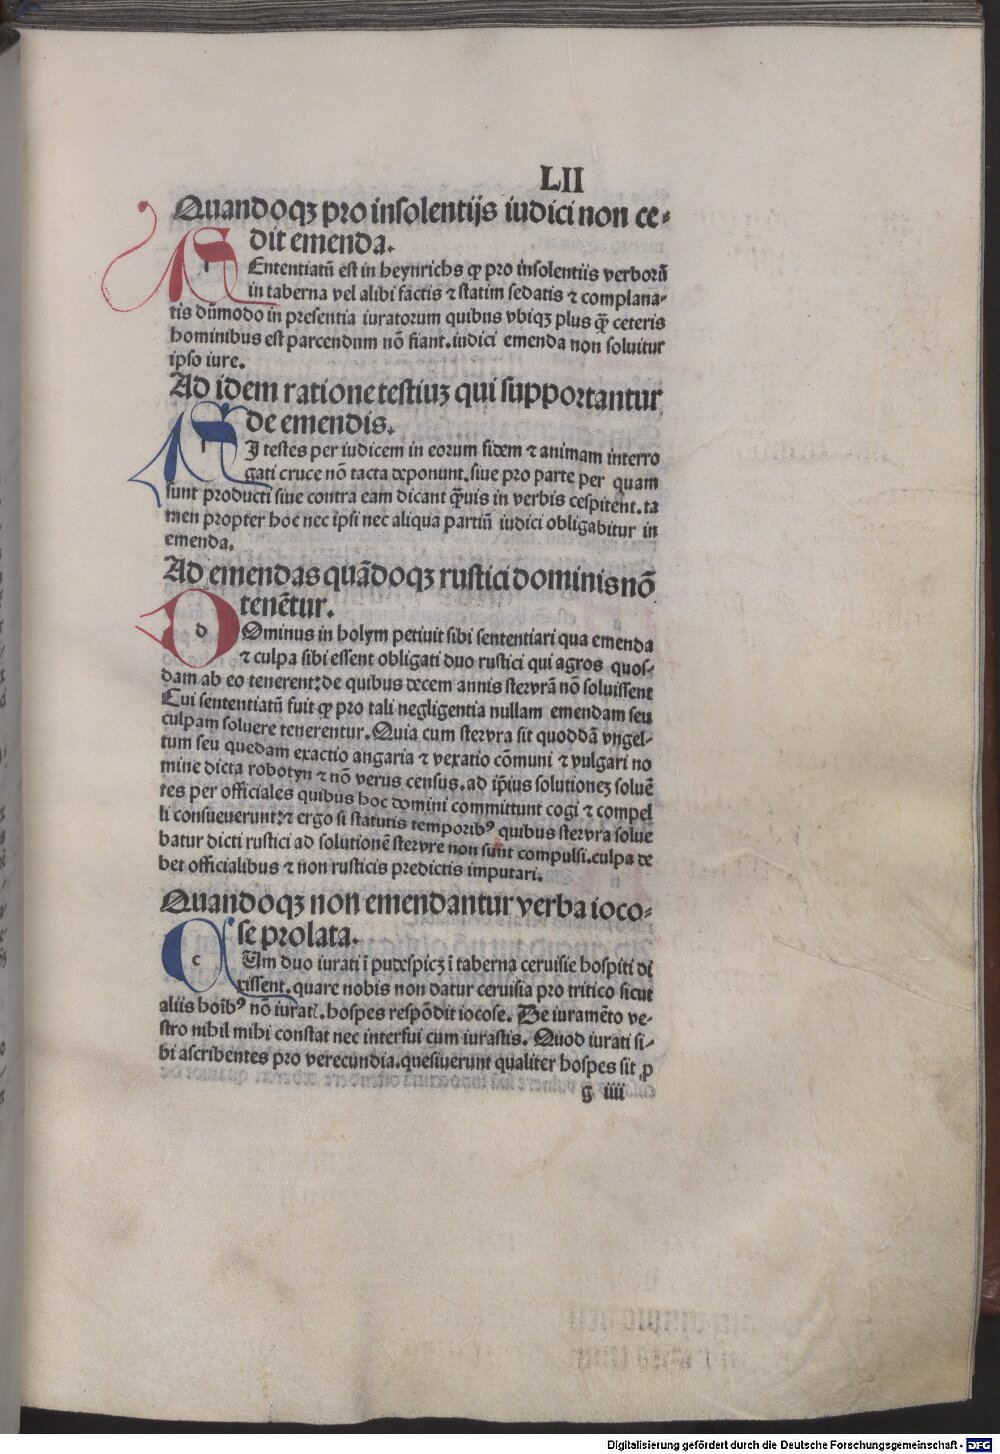 LII
Quandoqꝫ pro insolentijs iudici non ce-
dit emenda.
SEntentiatū est in heynrichs ꝙ pro insolentiis verborū
in taberna vel alibi factis ⁊ statim sedatis ⁊ complana-
tis dūmodo in presentia iuratorum quibus vbiqꝫ plus ꝙ̄ ceteris
hominibus est parcendum nō fiant. iudici emenda non soluitur
ipso iure.
Ad idem ratione testiuꝫ qui supportantur
de emendis.
SI testes per iudicem in eorum fidem ⁊ animam interro
gati cruce nō tacta deponunt. siue pro parte per quam
sunt producti siue contra eam dicant ꝙ̄uis in verbis cespitent. ta
men propter hoc nec ipsi nec aliqua partiū iudici obligabitur in
emenda.
Ad emendas quādoqꝫ rustici dominis nō
tenētur.
d
DOminus in holym petiuit sibi sententiari qua emenda
⁊ culpa sibi essent obligati duo rustici qui agros quos-
dam ab eo tenerent: de quibus decem annis stewrā nō soluissent
Cui sententiatū fuit ꝙ pro tali negligentia nullam emendam seu
culpam soluere tenerentur. Quia cum stewra sit quoddā vngel-
tum seu quedam exactio angaria ⁊ vexatio cōmuni ⁊ vulgari no
mine dicta robotyn ⁊ nō verus census. ad ip̄ius solutioneꝫ soluē
tes per officiales quibus hoc domini committunt cogi ⁊ compel
li consueuerunt: ⁊ ergo si statutis temporibꝰ quibus stewra solue
batur dicti rustici ad solutionē stewre non sunt compulsi. culpa de
bet officialibus ⁊ non rusticis predictis imputari.
Quandoqꝫ non emendantur verba ioco-
se prolata.
c
CUm duo iurati ī pudespicꝫ ī taberna ceruisie hospiti di
xissent. quare nobis non datur ceruisia pro tritico sicut
aliis hoībꝰ nō iurat̉. hospes respōdit iocose. De iuramēto ve-
stro nihil mihi constat nec interfui cum iurastis. Quod iurati si-
bi ascribentes pro verecundia. quesiuerunt qualiter hospes sit ꝓ
g iiii
Digitalisierung gefördert durch die Deutsche Forschungsgemeinschaft - DFG